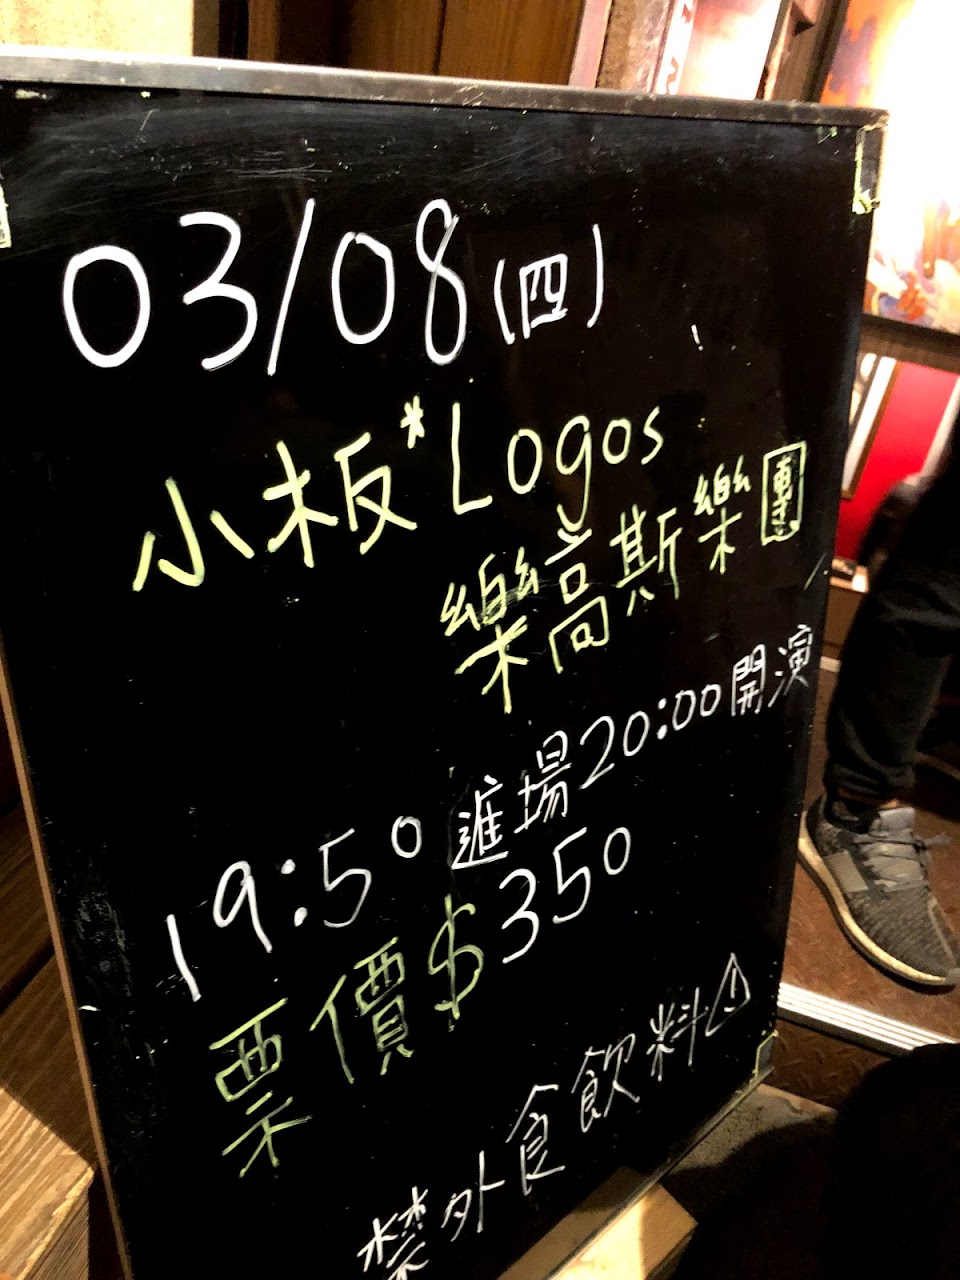 03/08(四)
小板*Logos
樂高斯樂團
19:50進場20:00開演
票價$350
禁外食飲料